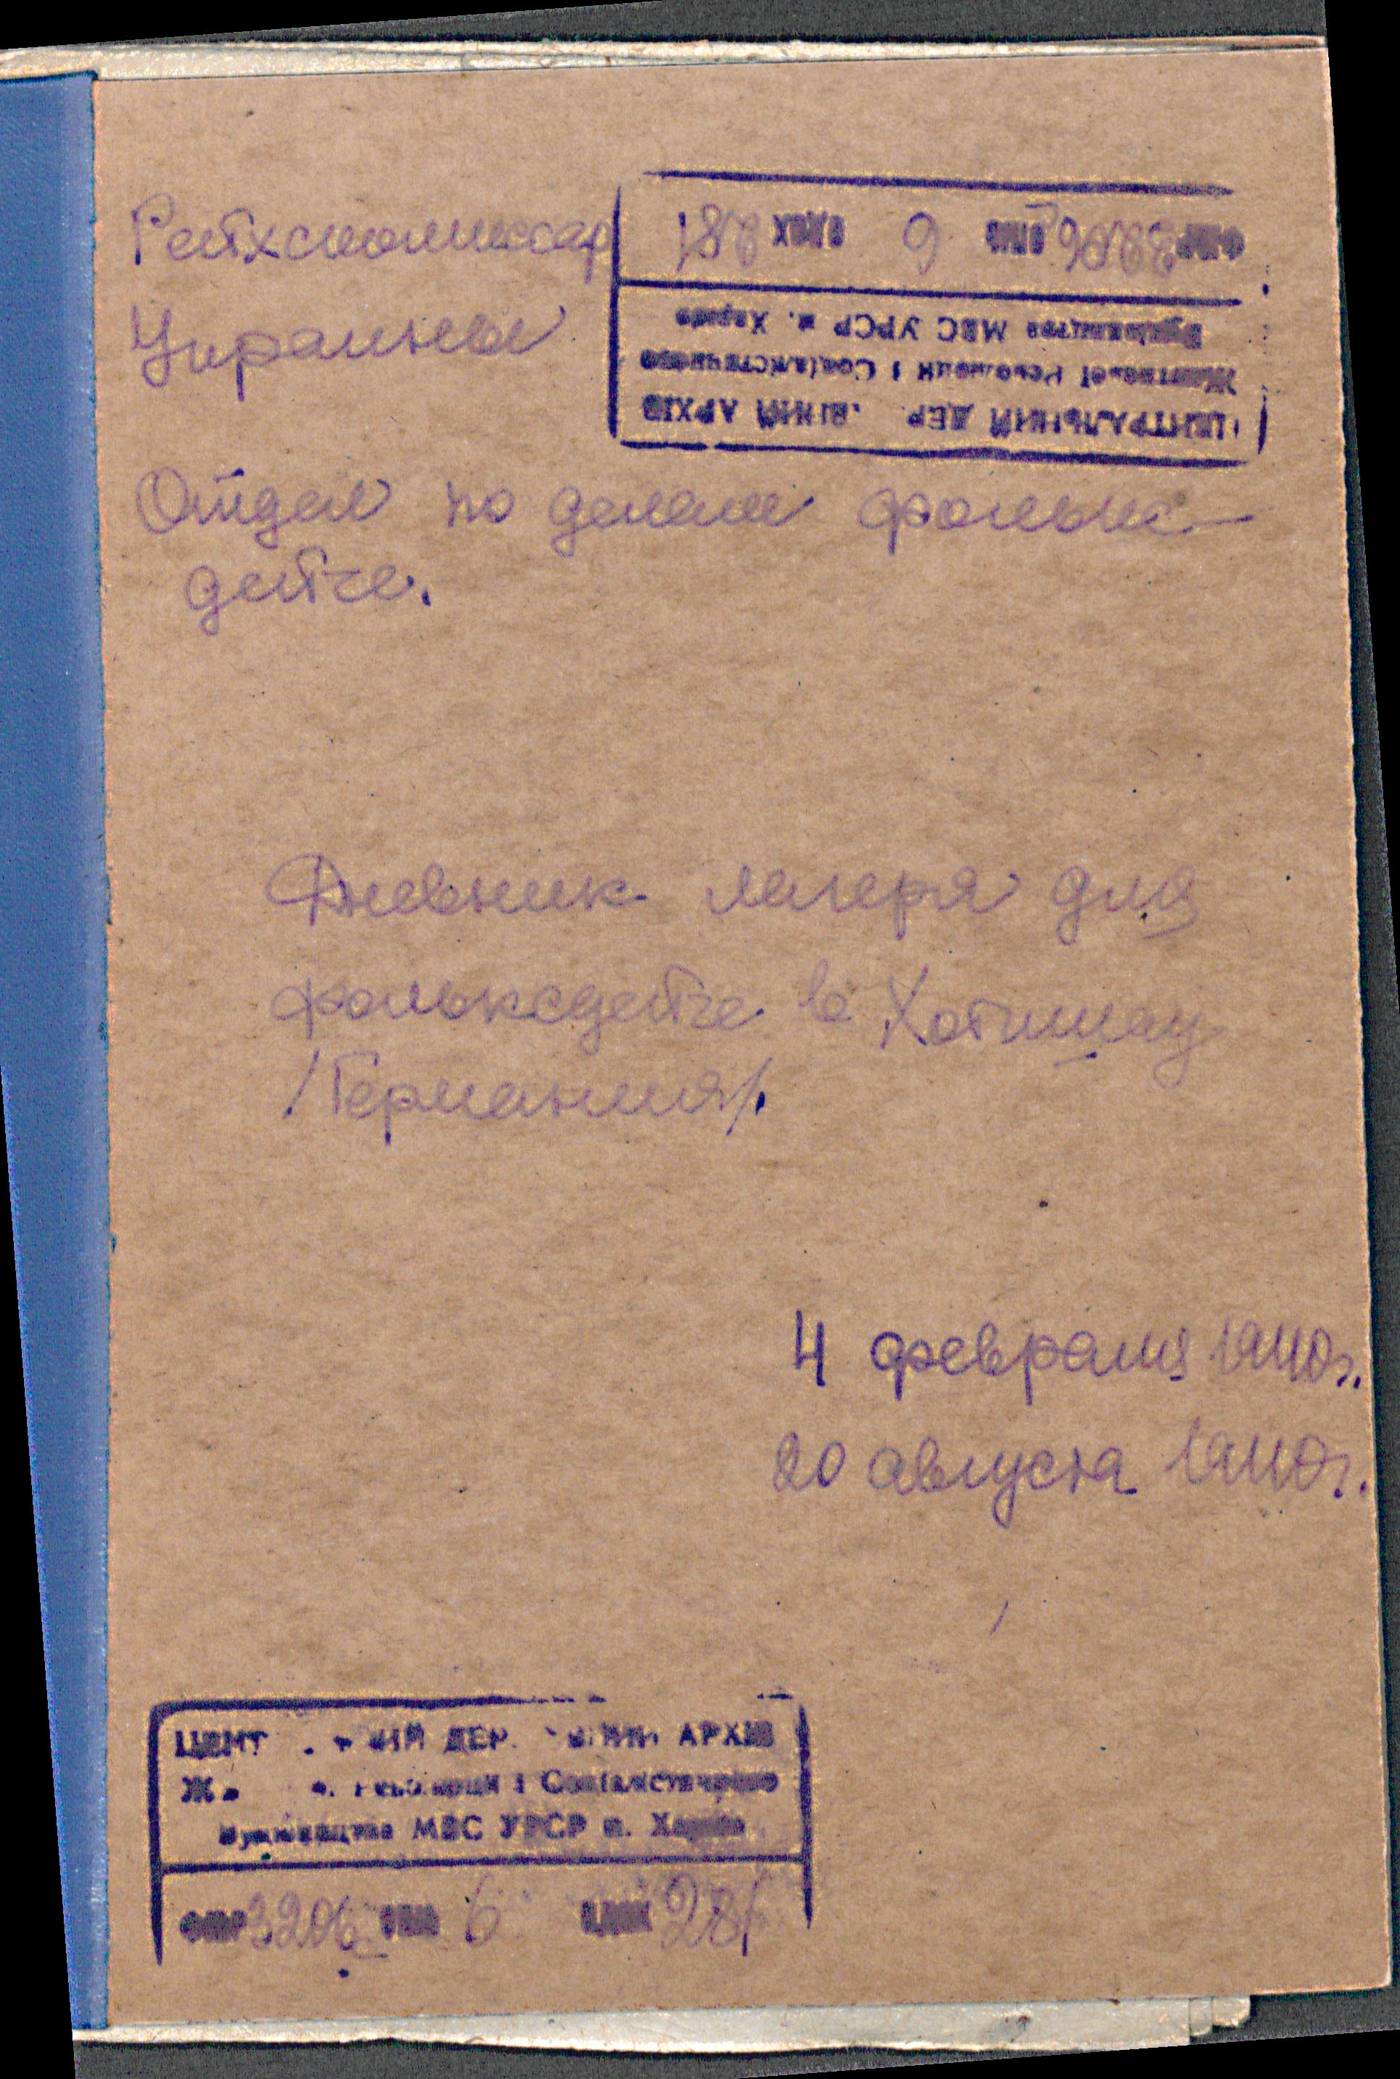 Рейхскомиссар
Украины
ФОНР 3206 ОПИС 6 ОДЗХ 281
Будівництва МВС УРСР м. Харків
Жовтневої Революції і Соціалістичного
ЦЕНТРАЛЬНИЙ ДЕР ВНИЙ АРХІВ
Отдел по делам фолькс-
дейче.
Дневник лагеря для
фольксдейче в Хотишау
/Германия/.
4 февраля 1940 г.
20 августа 1940 г.
ЦЕНТ НИЙ ДЕР ВНИЙ АРХІВ
Ж Революції і Соціалістичного
Будівництва МВС УРСР м. Харків
ФОНР 3206 ОПИС 6 ОДЗХ 281